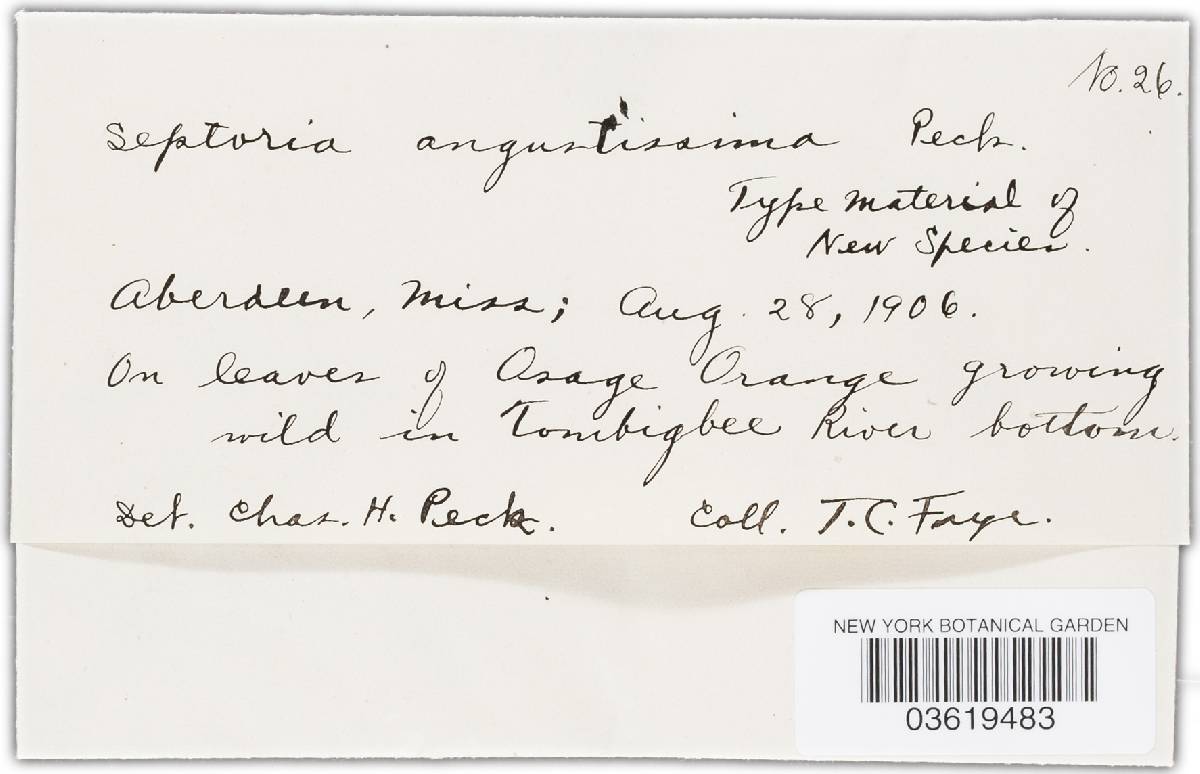 No. 26.
Septoria angustissima Peck.
Type material of
New Species.
Aberdeen, Miss; Aug. 28, 1906.
On leaves of Osage Orange growing
wild in Tombigbee River bottom.
Det. Chas. H. Peck. Coll. T. C. Frye.
NEW YORK BOTANICAL GARDEN
03619483